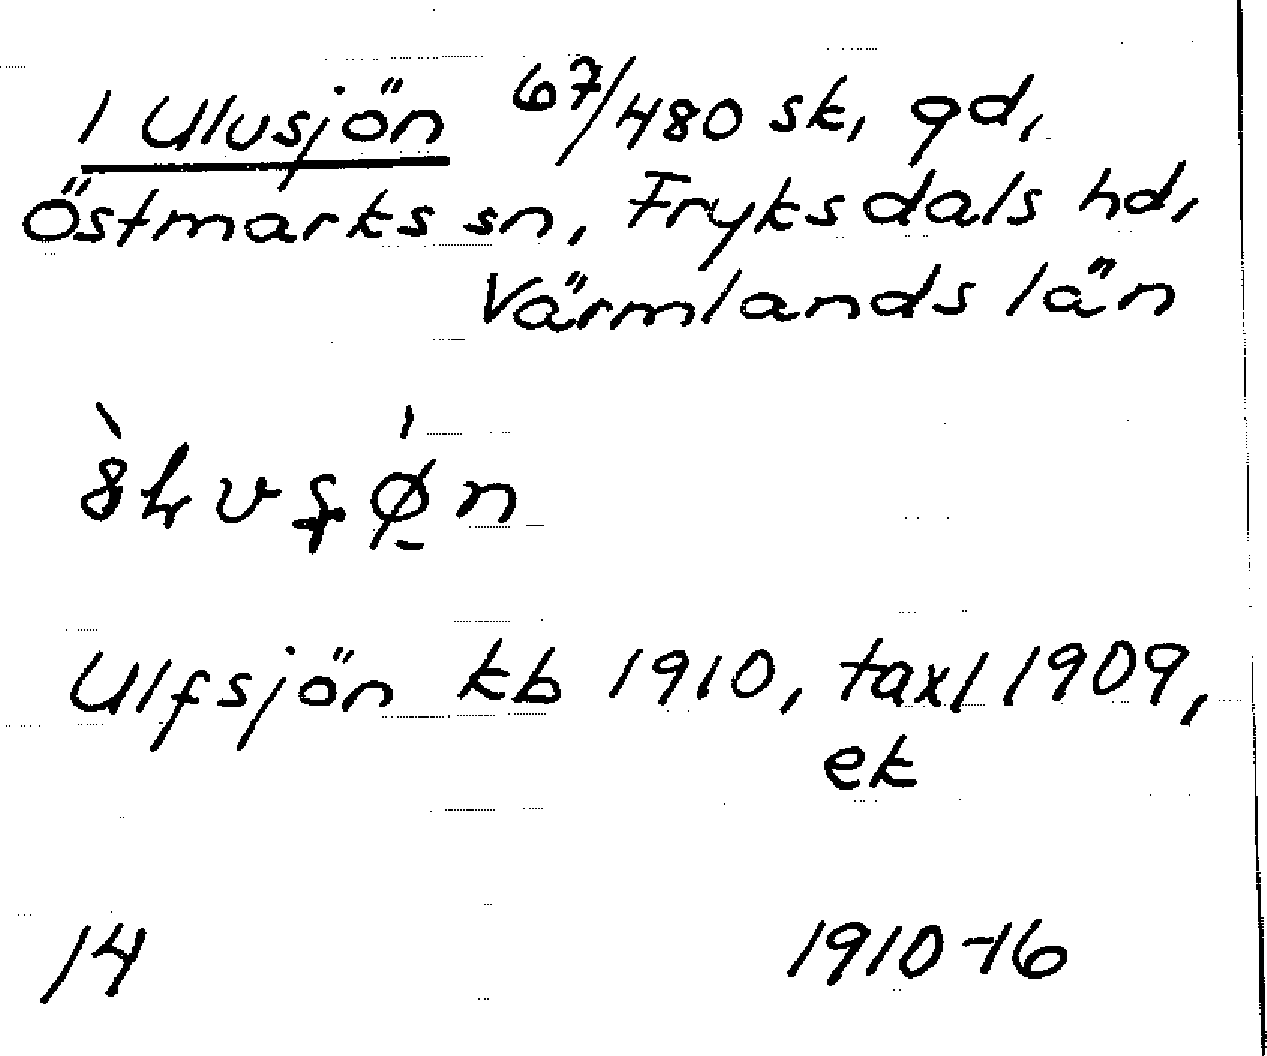 1 Ulvsjön 67/480 sk, gd,
Östmarks sn, Fryksdals hd,
Värmlands län
Ulfsjön kb 1910, taxl 1909,
ek
14 1910-16